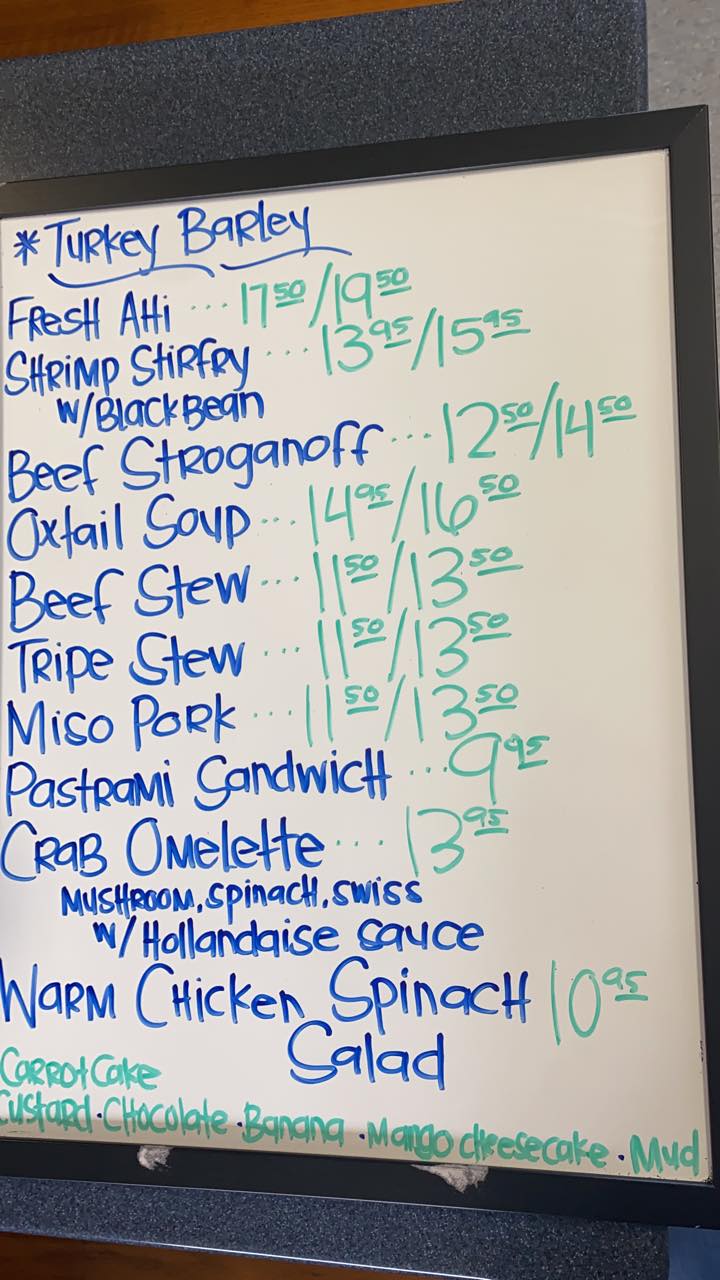 * Turkey Barley
Fresh Ahi ... 17 50/19 50
Shrimp Stirfry ... 13 95/15 95
w/Black Bean
Beef Stroganoff ... 12 50/14 50
Oxtail Soup ... 14 95/16 50
Beef Stew ... 11 50/13 50
Tripe Stew ... 11 50/13 50
Miso Pork ... 11 50/13 50
Pastrami Sandwich ... 9 95
Crab Omelette ... 13 95
Mushroom, Spinach, Swiss
w/Hollandaise Sauce
Warm Chicken Spinach 10 95
Salad
Carrot Cake
Custard · Chocolate · Banana · Mango Cheesecake · Mud